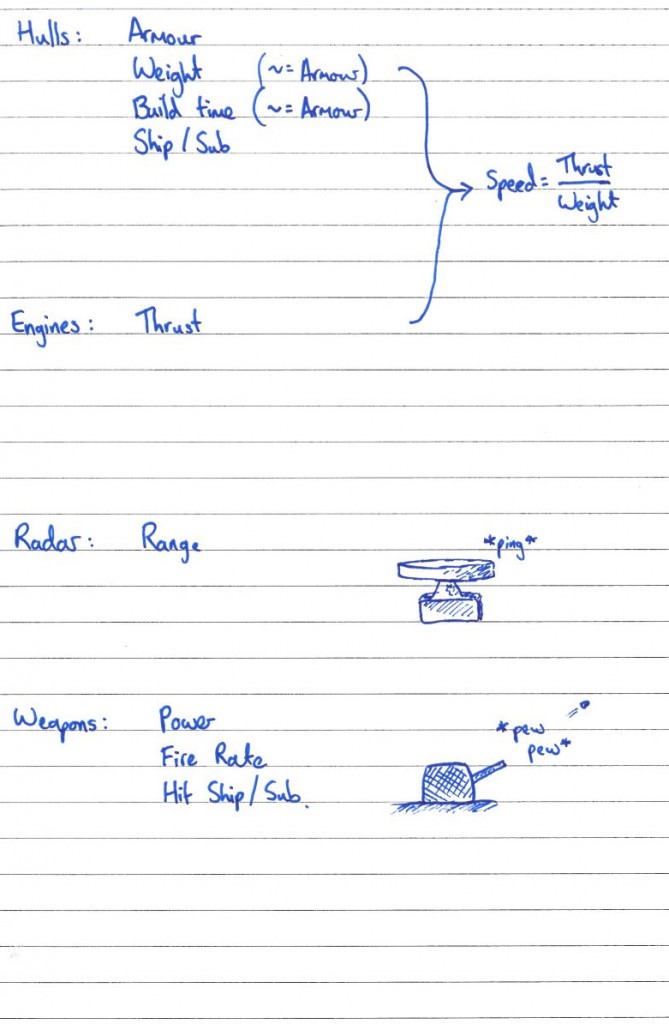 Hulls: Armour
Weight (~= Armour)
Build time (~= Armour)
Ship / Sub
Speed = Thrust
Weight
Engines: Thrust
Radar: Range
*ping*
Weapons: Power
*pew
pew*
Fire Rate
Hit Ship / Sub.